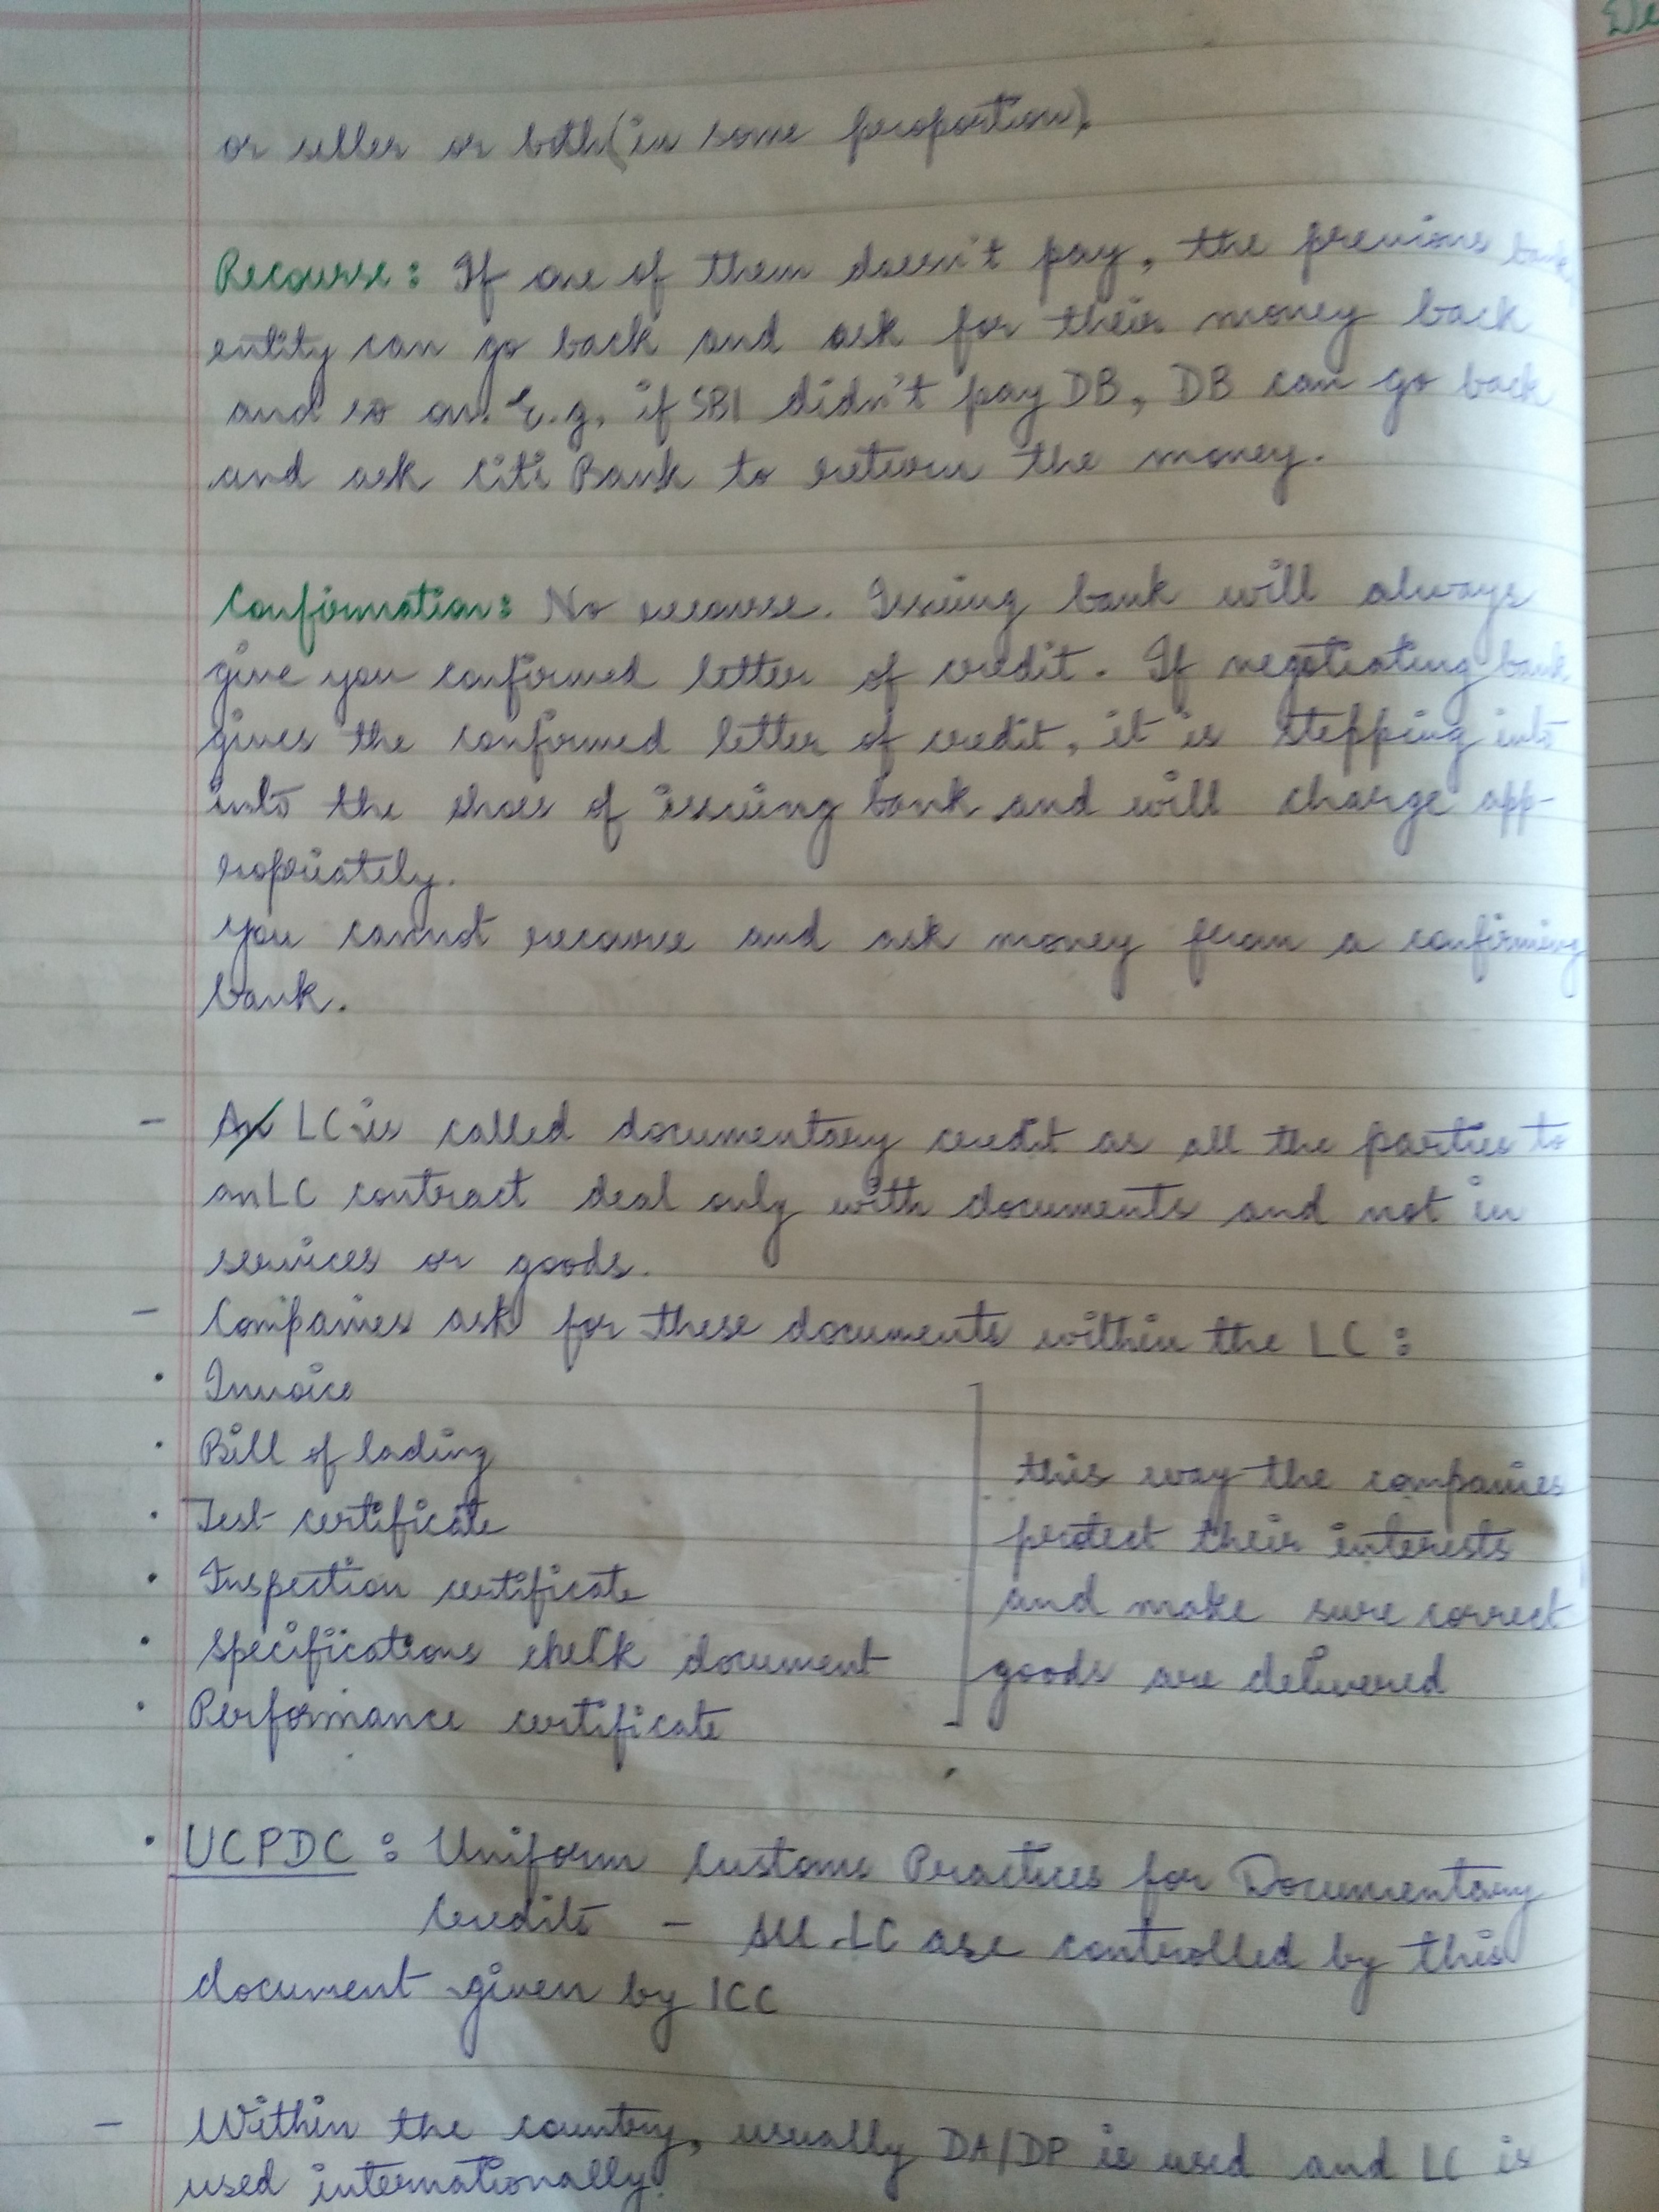 De
or seller or both (in some proportion).
Recourse: If one of them doesn't pay, the previous bank
entity can go back and ask for their money back
and so on. E.g, if SBI didn't pay DB, DB can go back
and ask Citi Bank to return the money.
Confirmation: No recourse. Issuing bank will always
give you confirmed letter of credit. If negotiating bank
gives the confirmed letter of credit, it is stepping into
into the shoes of issuing bank and will charge app-
ropriately.
You cannot recourse and ask money from a confirming
bank.
- An LC is called documentary credit as all the parties to
an LC contract deal only with documents and not in
services or goods.
- Companies ask for these documents within the LC :
• Invoice
• Bill of lading
this way the companies
• Test certificate
protect their interests
• Inspection certificate
and make sure correct
• Specifications check document
goods are delivered
• Performance certificate
• UCPDC : Uniform Customs Practices for Documentary
Credits - All LC are controlled by this
document given by ICC
- Within the country, usually DA/DP is used and LC is
used internationally.